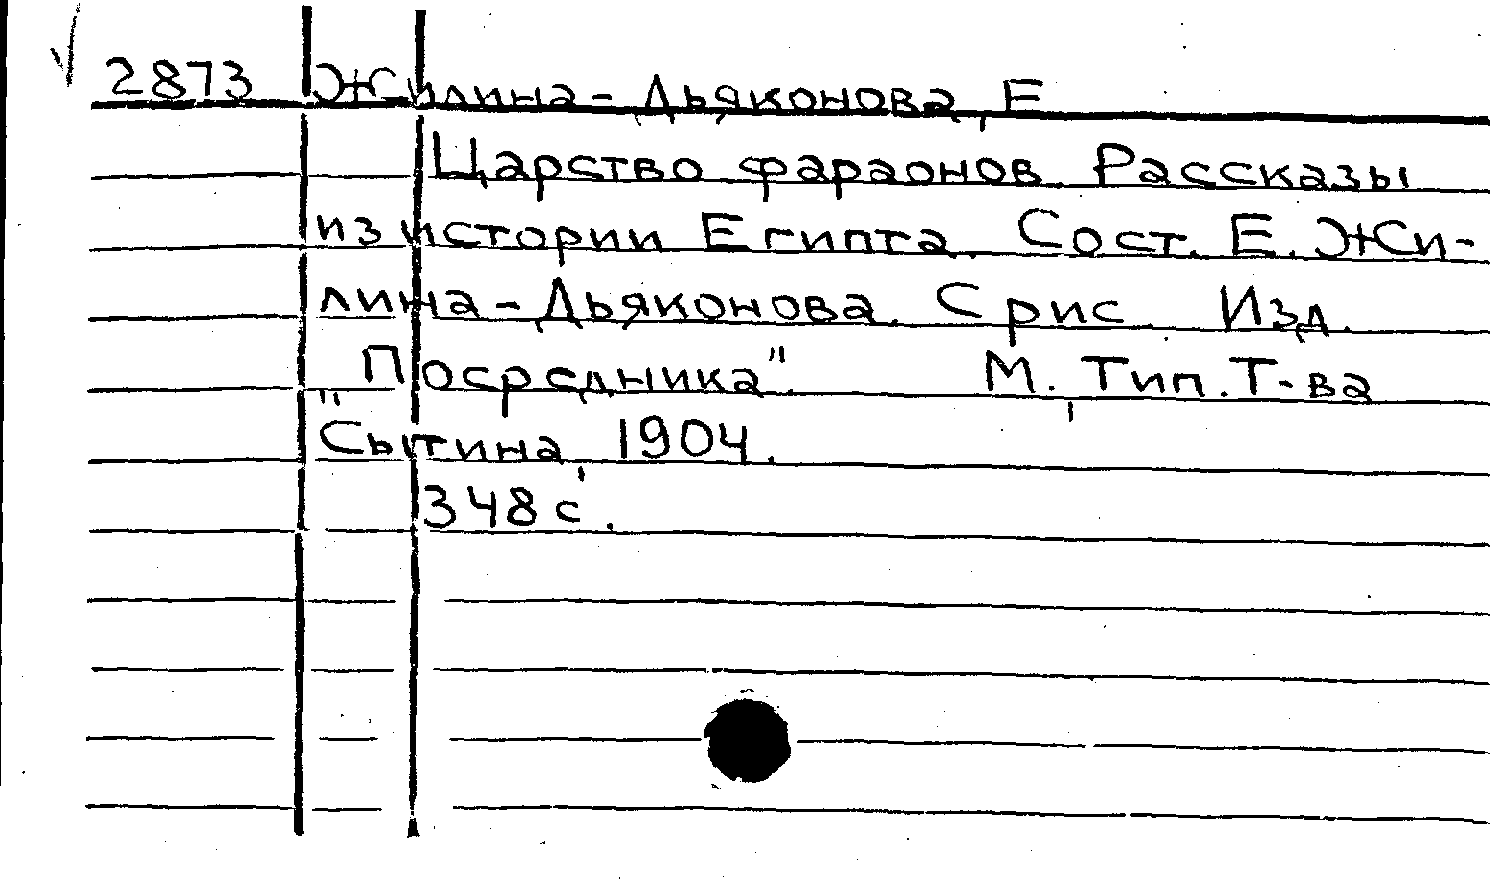 2873 Жилина-Дьяконова, Е
Царство фараонов. Рассказы
из истории Египта. Сост. Е. Жи-
лина-Дьяконова. С рис. Изд.
"Посредника". М., Тип. Т-ва
Сытина, 1904.
348 с.